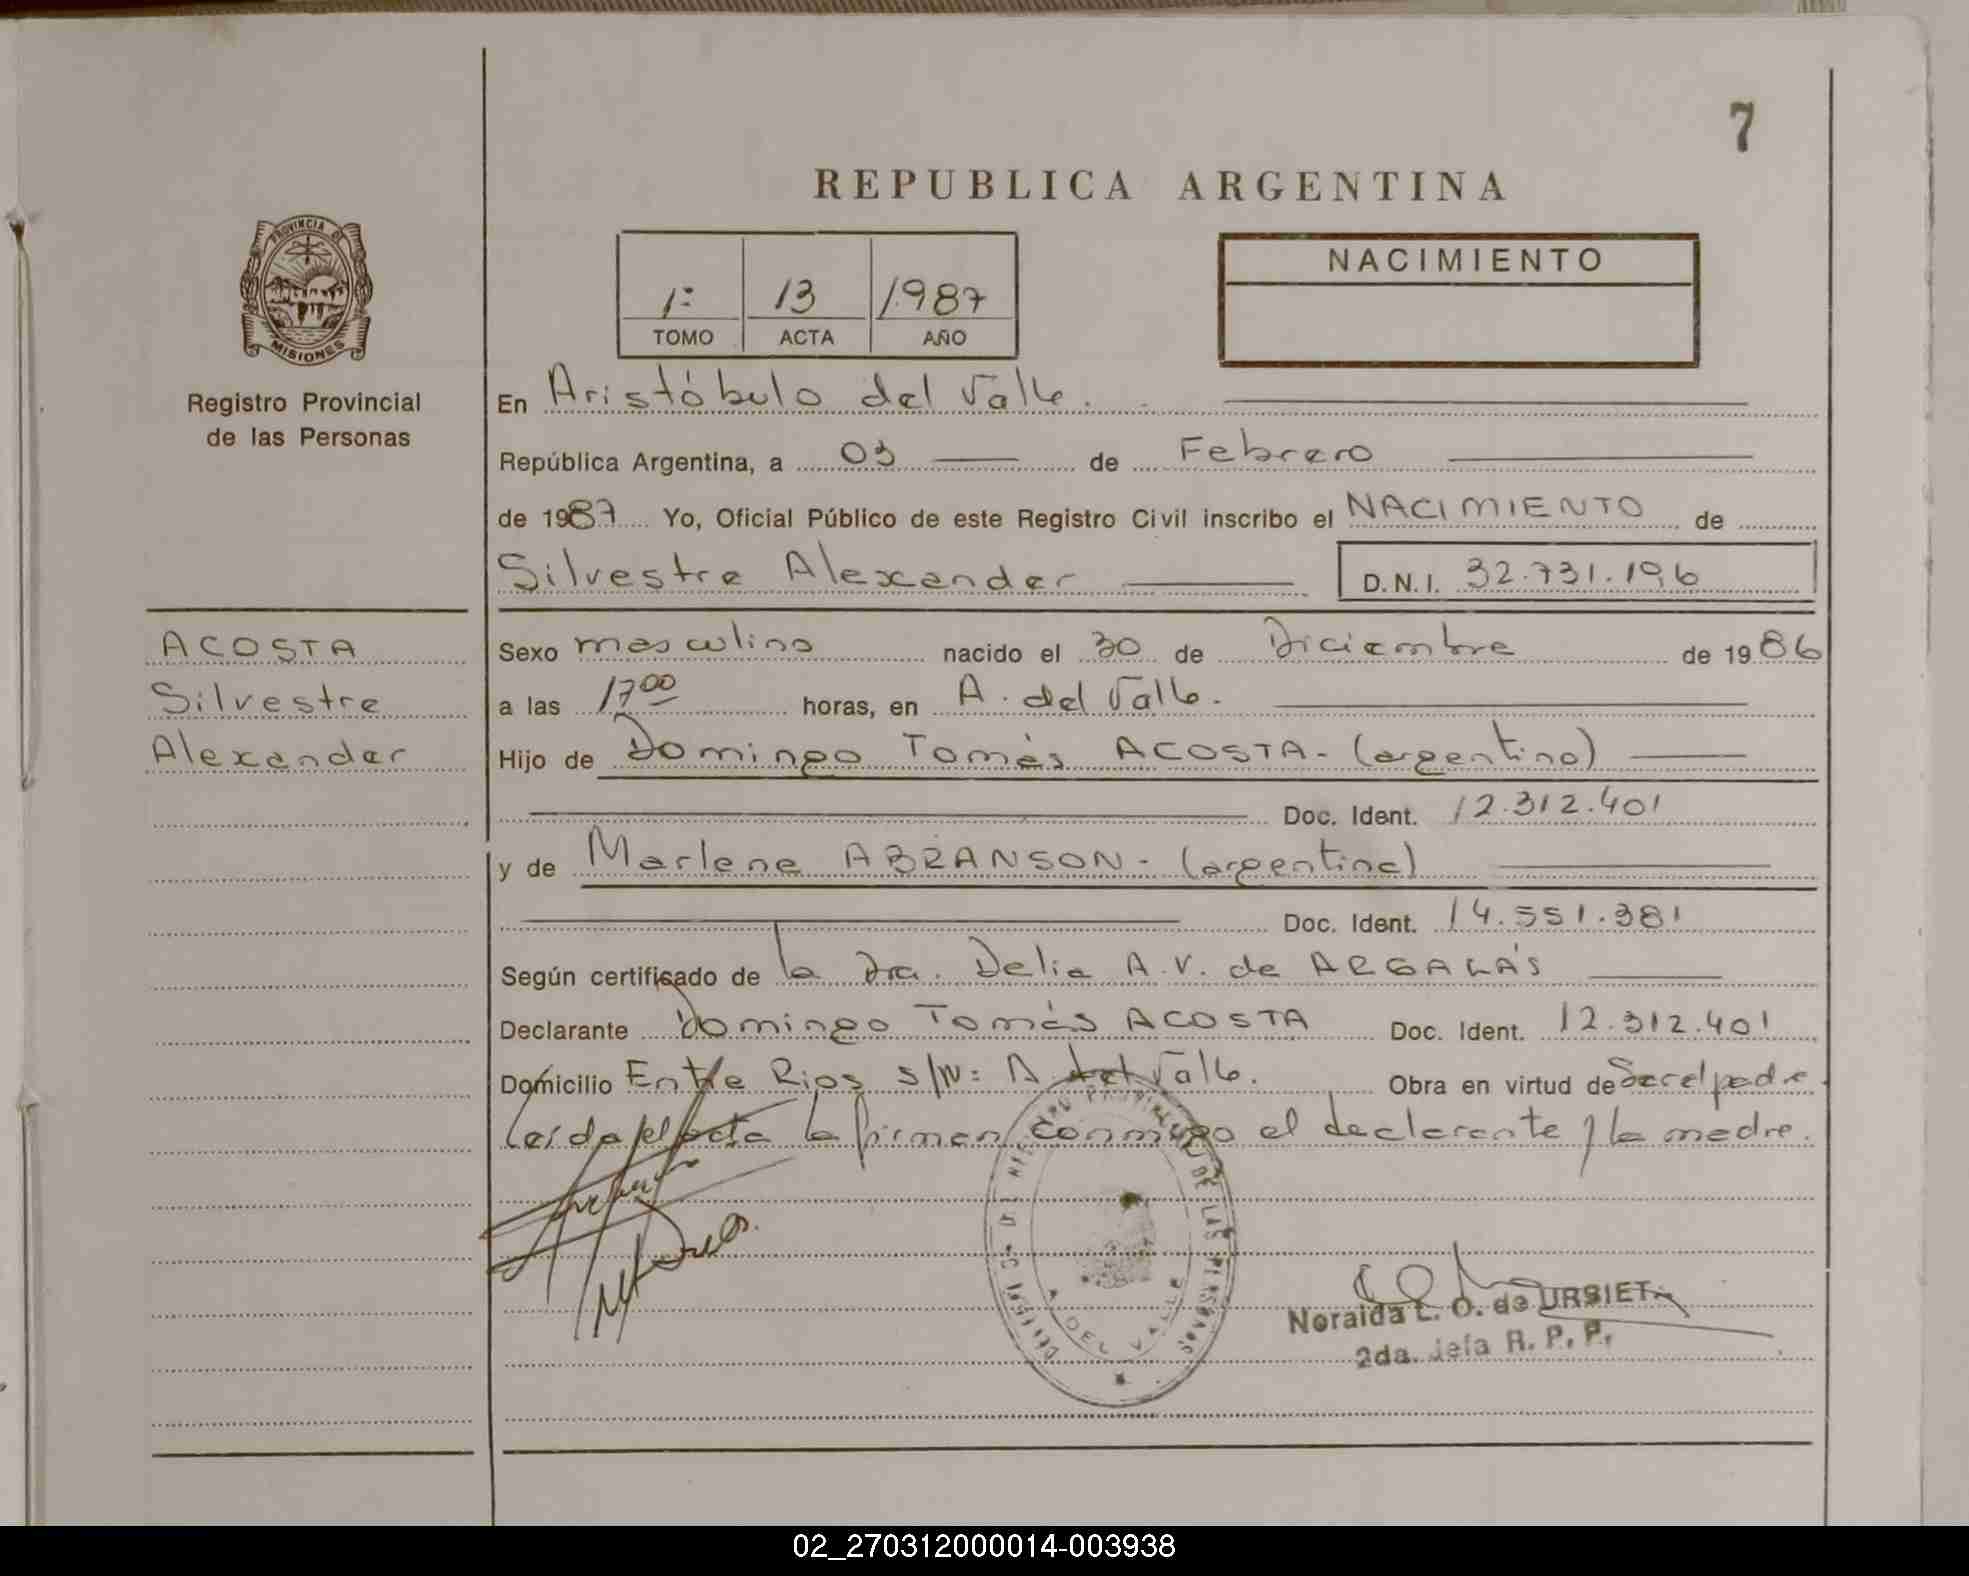 7
REPUBLICA ARGENTINA
PROVINCIA DE
MISIONES
Registro Provincial
de las Personas
1º 13 1987
TOMO ACTA AÑO
NACIMIENTO
En Aristóbulo del Valle.
República Argentina, a 03 de Febrero
de 1987 Yo, Oficial Público de este Registro Civil inscribo el NACIMIENTO de
Silvestre Alexander D.N.I. 32.731.196
ACOSTA
Silvestre
Alexander
Sexo masculino nacido el 30 de Diciembre de 1986
a las 17 00 horas, en A. del Valle.
Hijo de Domingo Tomás ACOSTA - (argentino)
Doc. Ident. 12.312.401
y de Marlene ABRANSON - (argentina)
Doc. Ident. 14.551.381
Según certificado de la Dra. Delia A.V. de ARGAÑAS
Declarante Domingo Tomás ACOSTA Doc. Ident. 12.312.401
Domicilio Entre Rios s/Nº A. del Valle. Obra en virtud de Ser el padre.
Leída el acta la firman conmigo el declarante y la madre.
DE LAS PERSONAS
A. DEL VALLE
Noraida L. O. de URSIETA
2da. Jefa R. P. P.
02_270312000014-003938